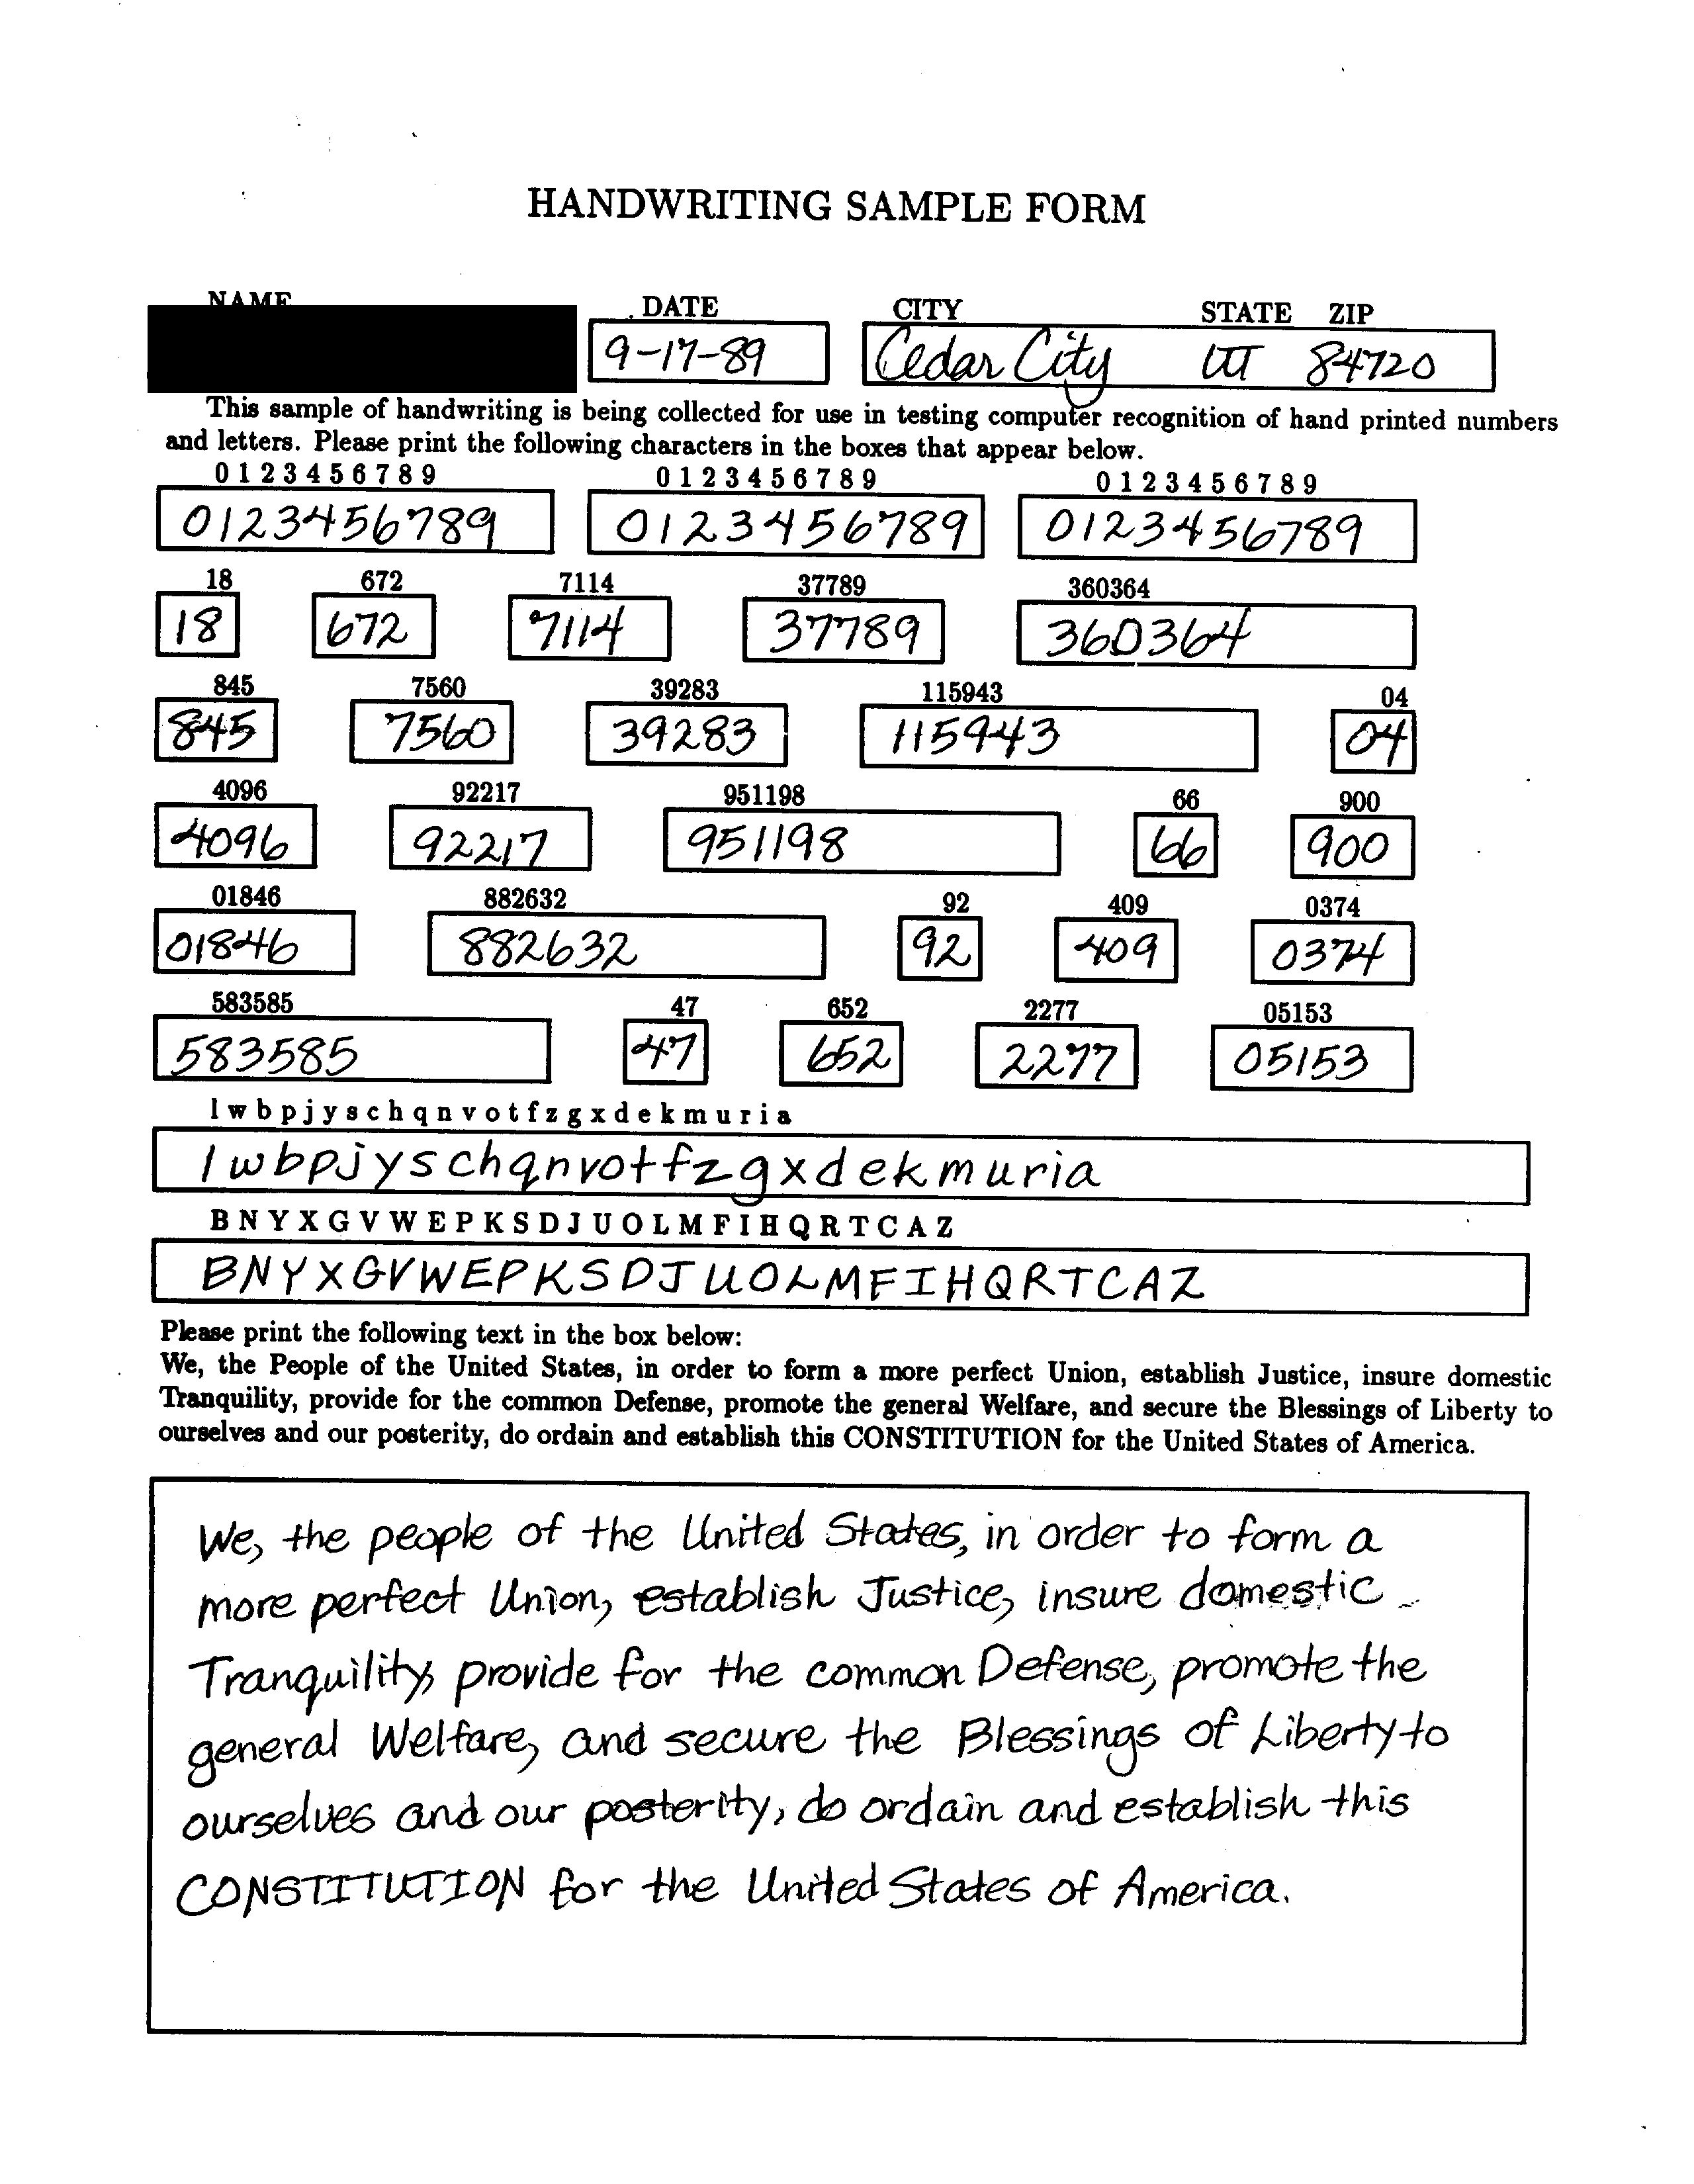 HANDWRITING SAMPLE FORM
NAME DATE CITY STATE ZIP
9-17-89 Cedar City UT 84720
This sample of handwriting is being collected for use in testing computer recognition of hand printed numbers
and letters. Please print the following characters in the boxes that appear below.
0 1 2 3 4 5 6 7 8 9 0 1 2 3 4 5 6 7 8 9 0 1 2 3 4 5 6 7 8 9
0123456789 0123456789 0123456789
18 672 7114 37789 360364
18 672 7114 37789 360364
845 7560 39283 115943 04
845 7560 39283 115943 04
4096 92217 951198 66 900
4096 92217 951198 66 900
01846 882632 92 409 0374
01846 882632 92 409 0374
583585 47 652 2277 05153
583585 47 652 2277 05153
l w b p j y s c h q n v o t f z g x d e k m u r i a
l w b p j y s c h q n v o t f z g x d e k m u r i a
B N Y X G V W E P K S D J U O L M F I H Q R T C A Z
B N Y X G V W E P K S D J U O L M F I H Q R T C A Z
Please print the following text in the box below:
We, the People of the United States, in order to form a more perfect Union, establish Justice, insure domestic
Tranquility, provide for the common Defense, promote the general Welfare, and secure the Blessings of Liberty to
ourselves and our posterity, do ordain and establish this CONSTITUTION for the United States of America.
We, the people of the United States, in order to form a
more perfect Union, establish Justice, insure domestic
Tranquility, provide for the common Defense, promote the
general Welfare, and secure the Blessings of Liberty to
ourselves and our posterity, do ordain and establish this
CONSTITUTION for the United States of America.